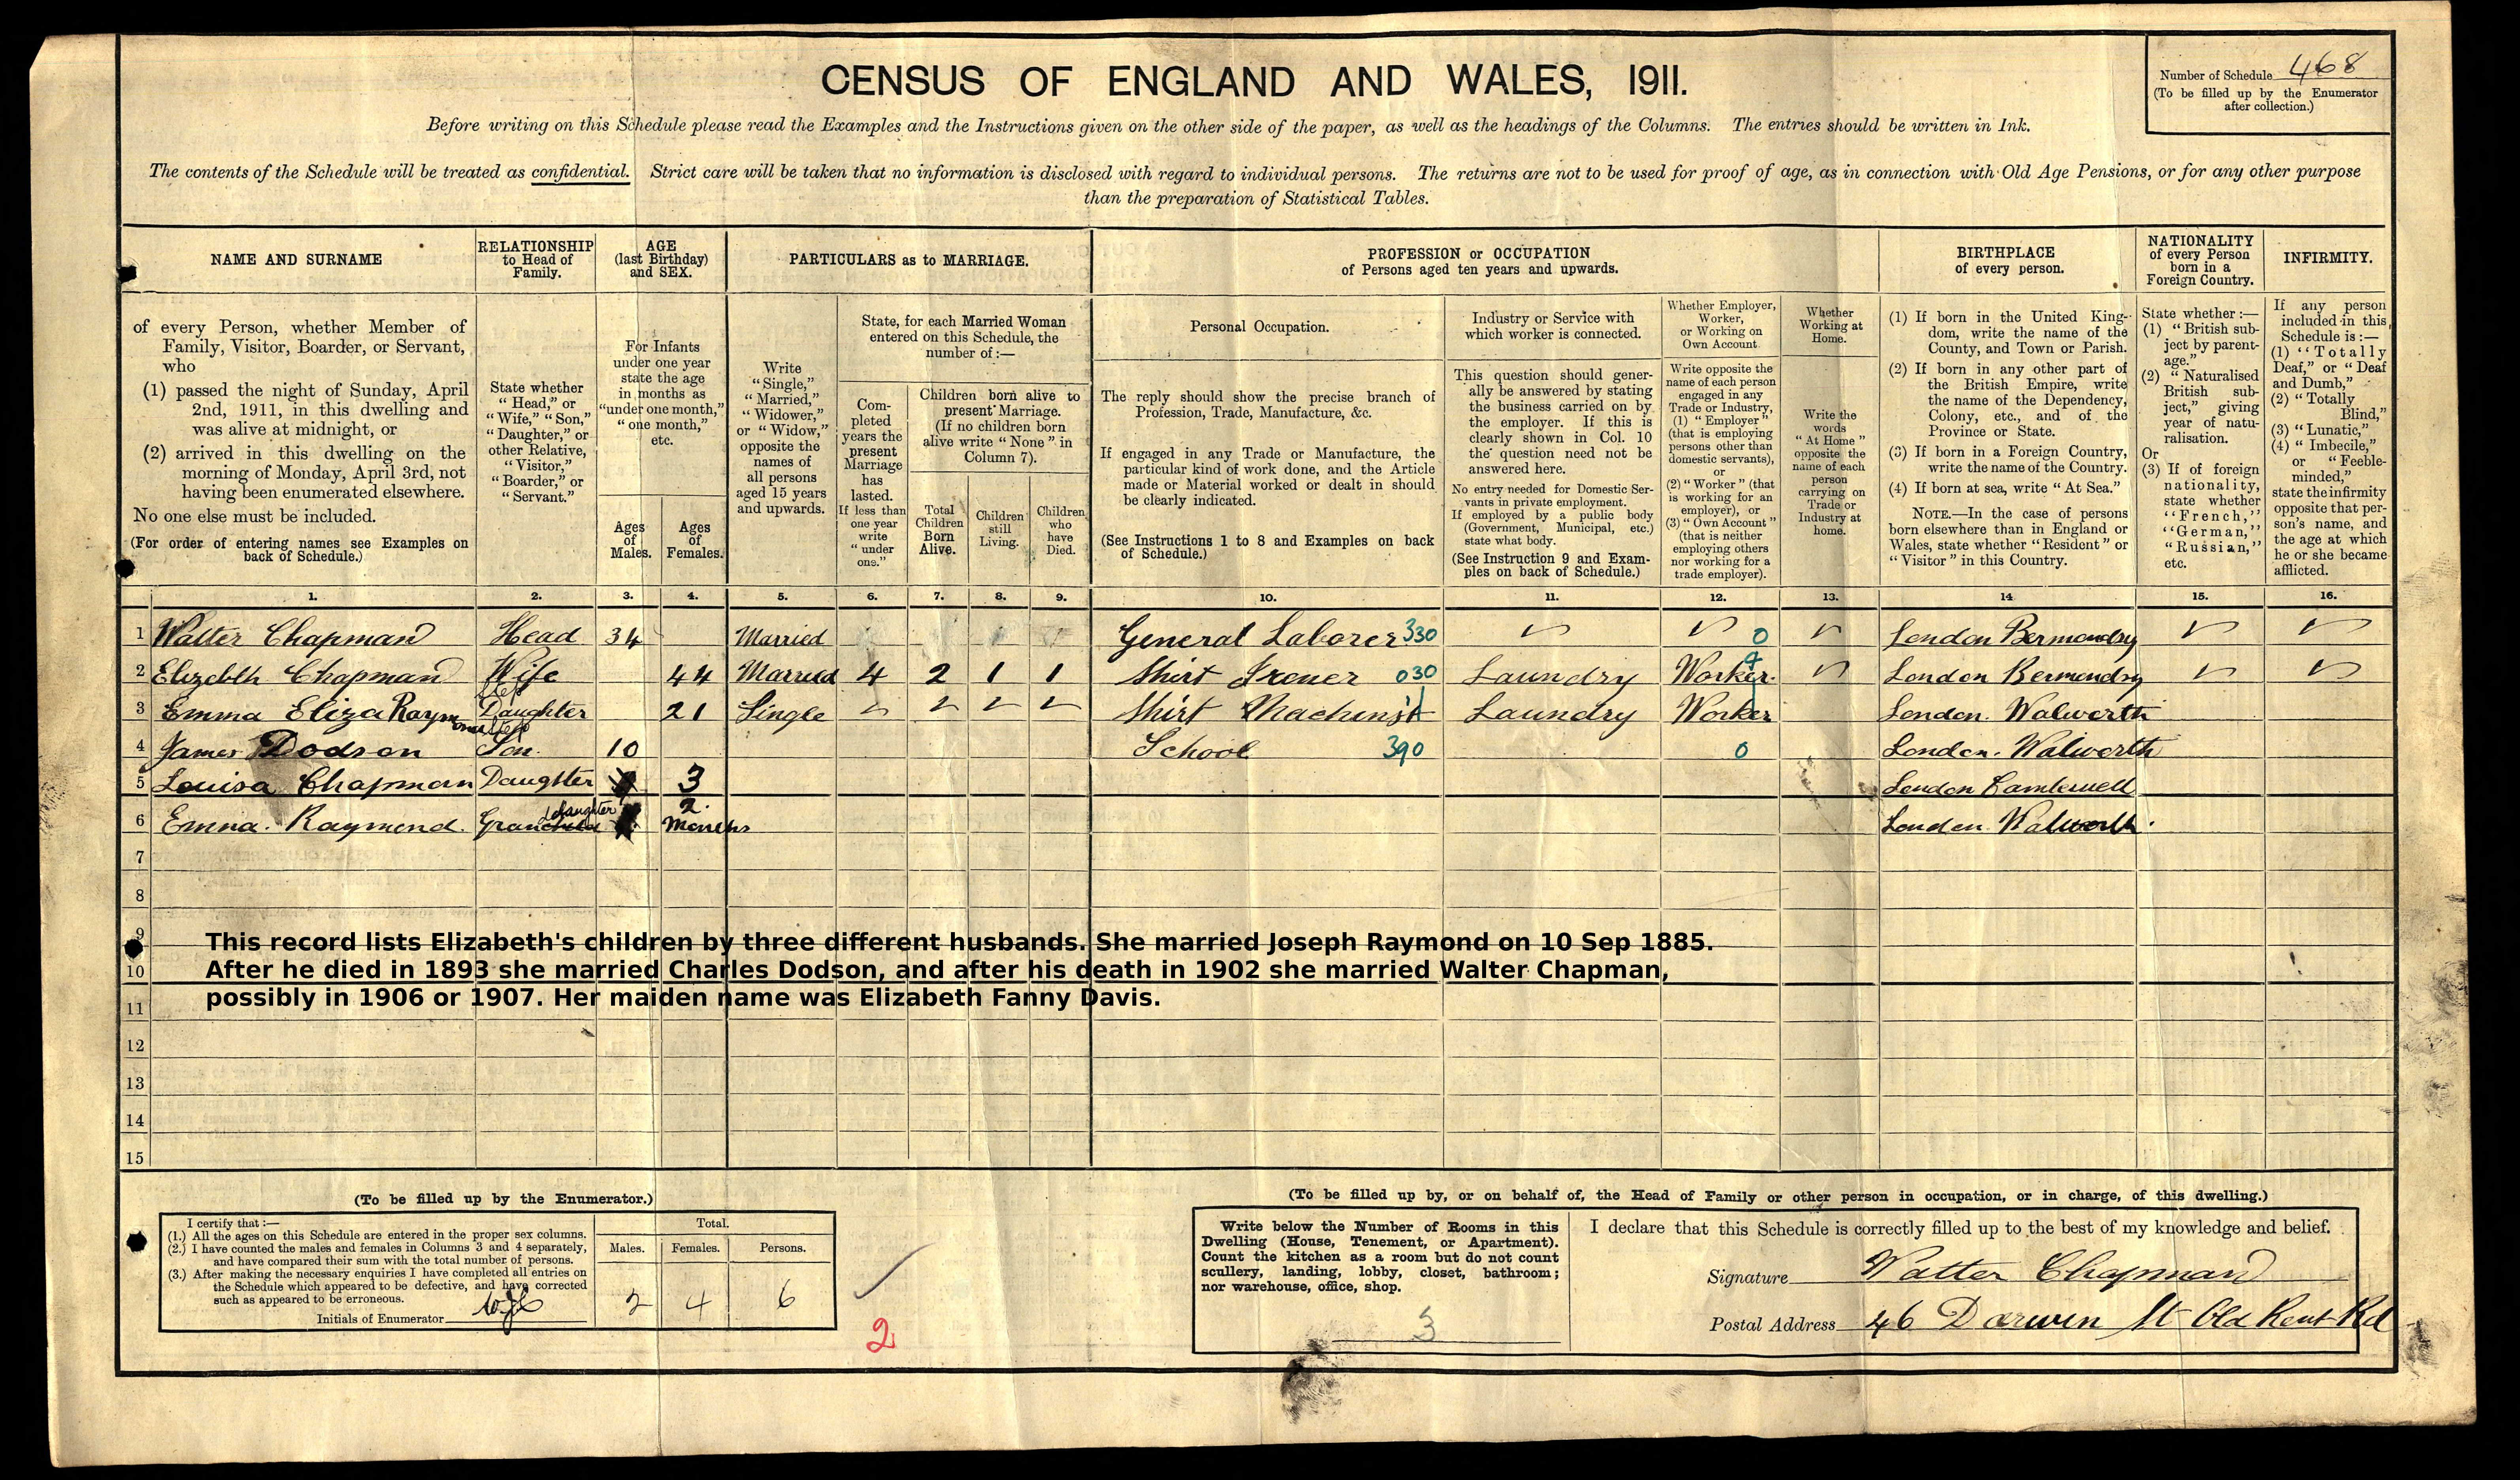 CENSUS OF ENGLAND AND WALES, 1911.
Number of Schedule 468
(To be filled up by the Enumerator
after collection.)
Before writing on this Schedule please read the Examples and the Instructions given on the other side of the paper, as well as the headings of the Columns. The entries should be written in Ink.
The contents of the Schedule will be treated as confidential. Strict care will be taken that no information is disclosed with regard to individual persons. The returns are not to be used for proof of age, as in connection with Old Age Pensions, or for any other purpose
than the preparation of Statistical Tables.
NAME AND SURNAME
RELATIONSHIP
to Head of
Family.
AGE
(last Birthday)
and SEX.
PARTICULARS as to MARRIAGE.
PROFESSION or OCCUPATION
of Persons aged ten years and upwards.
BIRTHPLACE
of every person.
NATIONALITY
of every Person
born in a
Foreign Country.
INFIRMITY.
of every Person, whether Member of
Family, Visitor, Boarder, or Servant,
who
(1) passed the night of Sunday, April
2nd, 1911, in this dwelling and
was alive at midnight, or
(2) arrived in this dwelling on the
morning of Monday, April 3rd, not
having been enumerated elsewhere.
No one else must be included.
(For order of entering names see Examples on
back of Schedule.)
State whether
"Head," or
"Wife," "Son,"
"Daughter," or
other Relative,
"Visitor,"
"Boarder," or
"Servant."
For Infants
under one year
state the age
in months as
"under one month,"
"one month,"
etc.
Ages
of
Males.
Ages
of
Females.
Write
"Single,"
"Married,"
"Widower,"
or "Widow,"
opposite the
names of
all persons
aged 15 years
and upwards.
State, for each Married Woman
entered on this Schedule, the
number of :—
Com-
pleted
years the
present
Marriage
has
lasted.
If less than
one year
write
"under
one."
Children born alive to
present Marriage.
(If no children born
alive write "None" in
Column 7).
Total
Children
Born
Alive.
Children
still
Living.
Children
who
have
Died.
Personal Occupation.
The reply should show the precise branch of
Profession, Trade, Manufacture, &c.
If engaged in any Trade or Manufacture, the
particular kind of work done, and the Article
made or Material worked or dealt in should
be clearly indicated.
(See Instructions 1 to 8 and Examples on back
of Schedule.)
Industry or Service with
which worker is connected.
This question should gener-
ally be answered by stating
the business carried on by
the employer. If this is
clearly shown in Col. 10
the question need not be
answered here.
No entry needed for Domestic Ser-
vants in private employment.
If employed by a public body
(Government, Municipal, etc.)
state what body.
(See Instruction 9 and Exam-
ples on back of Schedule.)
Whether Employer,
Worker,
or Working on
Own Account
Write opposite the
name of each person
engaged in any
Trade or Industry,
(1) "Employer"
(that is employing
persons other than
domestic servants),
or
(2) "Worker" (that
is working for an
employer), or
(3) "Own Account"
(that is neither
employing others
nor working for a
trade employer).
Whether
Working at
Home.
Write the
words
"At Home"
opposite the
name of each
person
carrying on
Trade or
Industry at
home.
(1) If born in the United King-
dom, write the name of the
County, and Town or Parish.
(2) If born in any other part of
the British Empire, write
the name of the Dependency,
Colony, etc., and of the
Province or State.
(3) If born in a Foreign Country,
write the name of the Country.
(4) If born at sea, write "At Sea."
NOTE.—In the case of persons
born elsewhere than in England or
Wales, state whether "Resident" or
"Visitor" in this Country.
State whether :—
(1) "British sub-
ject by parent-
age."
(2) "Naturalised
British sub-
ject," giving
year of natu-
ralisation.
Or
(3) If of foreign
nationality,
state whether
"French,"
"German,"
"Russian,"
etc.
If any person
included in this
Schedule is :—
(1) "Totally
Deaf," or "Deaf
and Dumb,"
(2) "Totally
Blind,"
(3) "Lunatic,"
(4) "Imbecile,"
or "Feeble-
minded,"
state the infirmity
opposite that per-
son's name, and
the age at which
he or she became
afflicted.
1. 2. 3. 4. 5. 6. 7. 8. 9. 10. 11. 12. 13. 14 15. 16.
1 Walter Chapman Head 34 Married General Laborer 330 0 London Bermondsy
2 Elizebth Chapman Wife 44 Married 4 2 1 1 Shirt Irener 030 Laundry Worker. London Bermondsy
3 Emma Eliza Raymond Step Daughter 21 Single Shirt Machinist Laundry Worker London. Walworth
4 James Dodson Step Son. 10 School 390 0 London. Walworth
5 Louisa Chapman Daughter 3 London Camberwell
6 Emma. Raymond. Grandaughter 2 Months London Walworth.
7
8
9
10
11
12
13
14
15
This record lists Elizabeth's children by three different husbands. She married Joseph Raymond on 10 Sep 1885.
After he died in 1893 she married Charles Dodson, and after his death in 1902 she married Walter Chapman,
possibly in 1906 or 1907. Her maiden name was Elizabeth Fanny Davis.
(To be filled up by the Enumerator.)
I certify that :—
(1.) All the ages on this Schedule are entered in the proper sex columns.
(2.) I have counted the males and females in Columns 3 and 4 separately,
and have compared their sum with the total number of persons.
(3.) After making the necessary enquiries I have completed all entries on
the Schedule which appeared to be defective, and have corrected
such as appeared to be erroneous.
Initials of Enumerator
Total.
Males. Females. Persons.
2 4 6
2
(To be filled up by, or on behalf of, the Head of Family or other person in occupation, or in charge, of this dwelling.)
Write below the Number of Rooms in this
Dwelling (House, Tenement, or Apartment).
Count the kitchen as a room but do not count
scullery, landing, lobby, closet, bathroom;
nor warehouse, office, shop.
3
I declare that this Schedule is correctly filled up to the best of my knowledge and belief.
Signature Walter Chapman
Postal Address 46 Darwin St Old Kent Rd